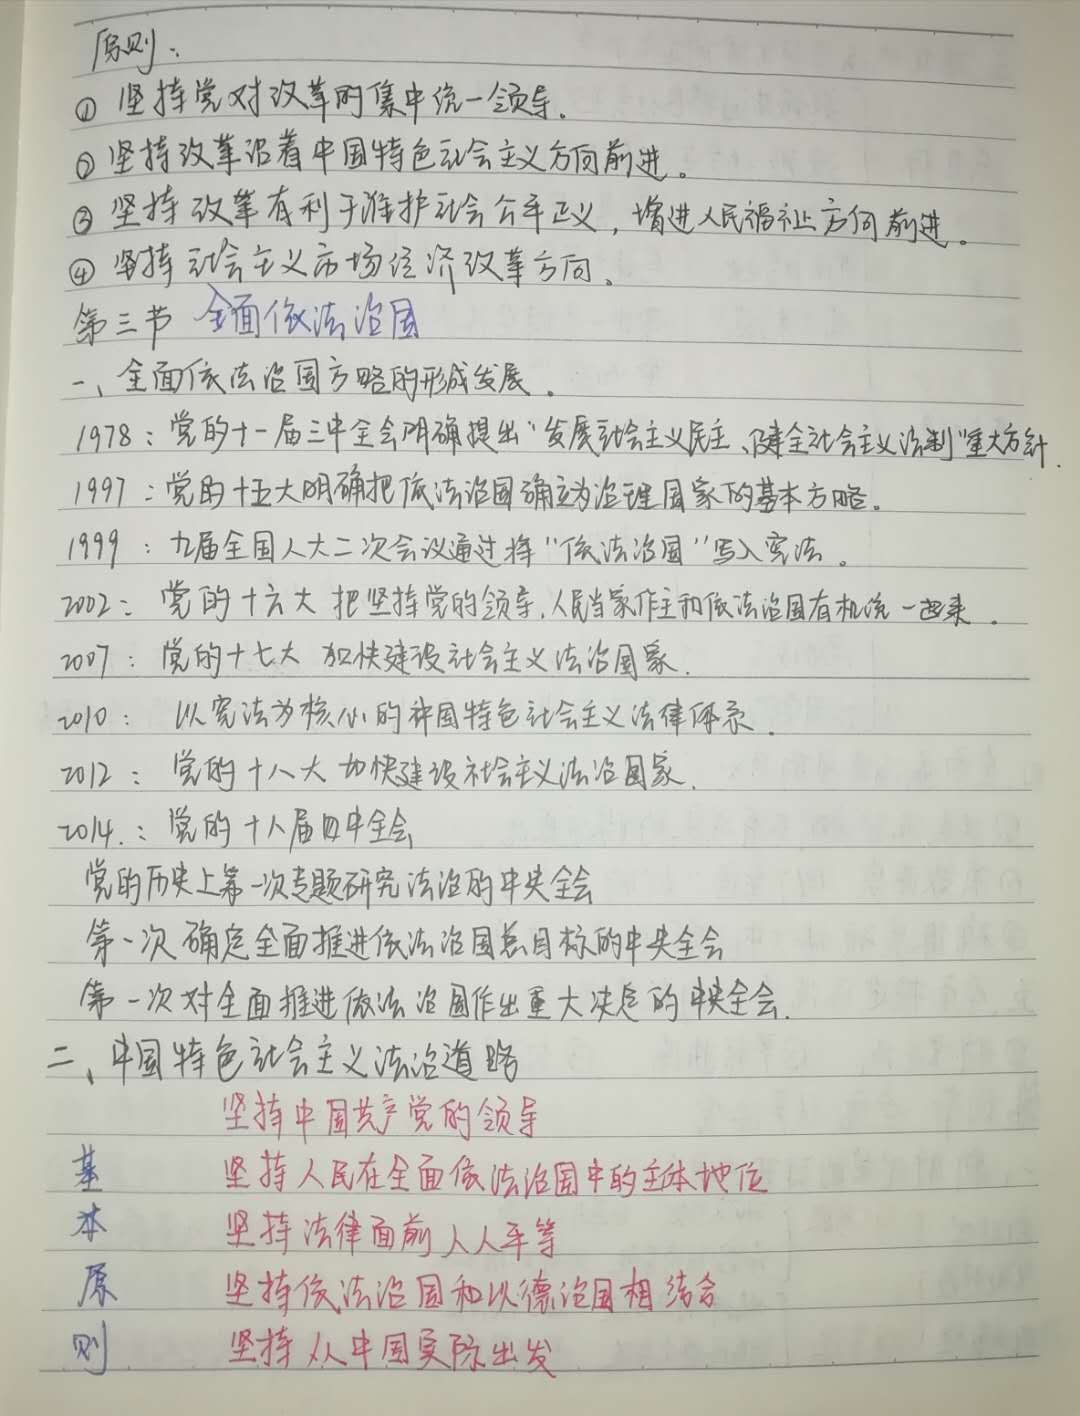 原则：
① 坚持党对改革的集中统一领导.
② 坚持改革沿着中国特色社会主义方向前进。
③ 坚持改革有利于维护社会公平正义，增进人民福祉方向前进。
④ 坚持社会主义市场经济改革方向。
第三节 全面依法治国
一、全面依法治国方略的形成发展。
1978：党的十一届三中全会明确提出“发展社会主义民主、健全社会主义法制”重大方针.
1997：党的十五大明确把依法治国确立为治理国家的基本方略。
1999：九届全国人大二次会议通过将“依法治国”写入宪法。
2002：党的十六大 把坚持党的领导，人民当家作主和依法治国有机统一起来。
2007：党的十七大 加快建设社会主义法治国家.
2010：以宪法为核心的中国特色社会主义法律体系.
2012：党的十八大 加快建设社会主义法治国家.
2014.：党的十八届四中全会
党的历史上第一次专题研究法治的中央全会
第一次确定全面推进依法治国总目标的中央全会
第一次对全面推进依法治国作出重大决定的中央全会.
二、中国特色社会主义法治道路
坚持中国共产党的领导
基 坚持人民在全面依法治国中的主体地位
本 坚持法律面前人人平等
原 坚持依法治国和以德治国相结合
则 坚持从中国实际出发